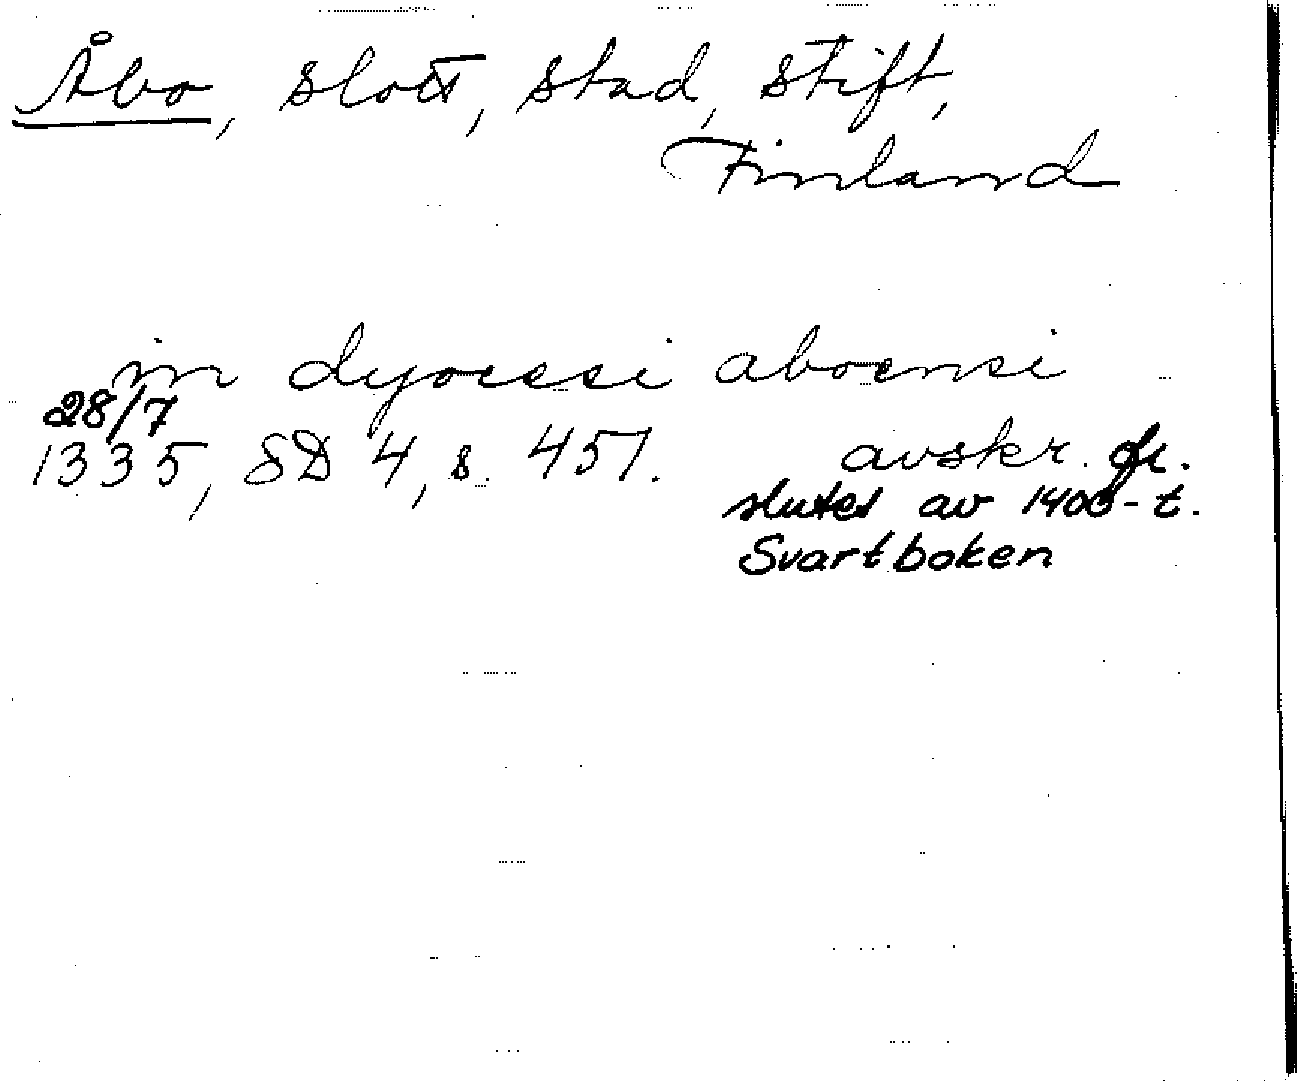 Åbo, slott, stad, stift,
Finland
in dyocesi aboensi
28/7
1335, SD 4, s. 451. avskr. fr.
slutet av 1400-t.
Svartboken